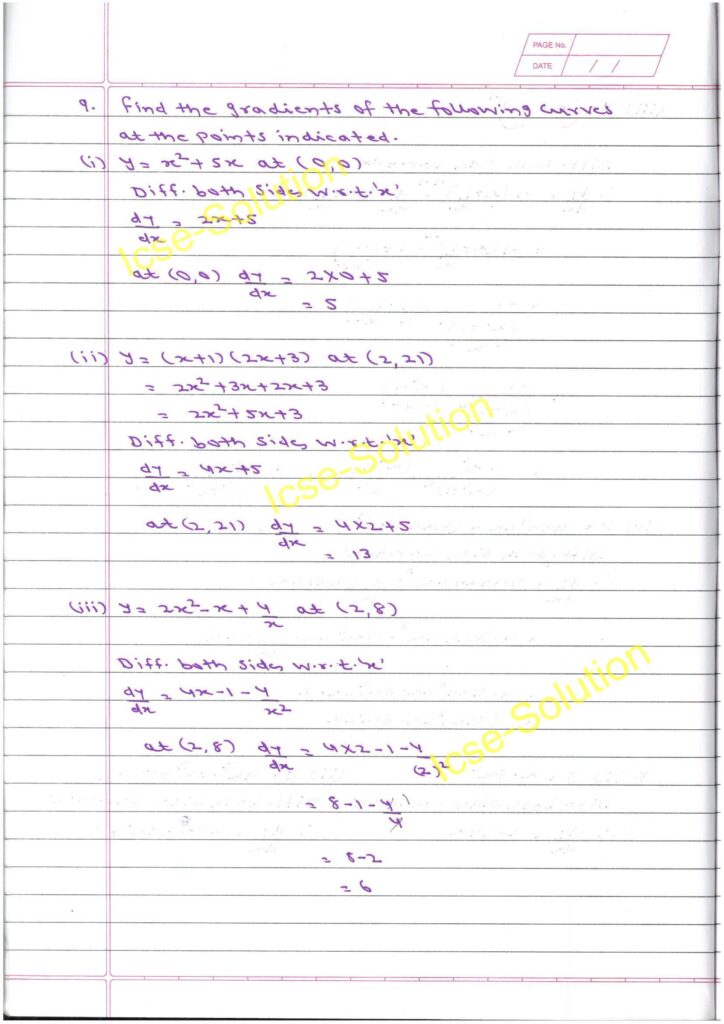 PAGE No.
DATE / /
9. Find the gradients of the following curves
at the points indicated.
(i) y = x² + 5x at (0,0)
Diff. both sides w.r.t. 'x'
dy/dx = 2x+5
at (0,0) dy/dx = 2×0+5
= 5
(ii) y = (x+1)(2x+3) at (2,21)
= 2x²+3x+2x+3
= 2x²+5x+3
Diff. both sides w.r.t. 'x'
dy/dx = 4x+5
at (2,21) dy/dx = 4×2+5
= 13
(iii) y = 2x²-x+4/x at (2,8)
Diff. both sides w.r.t. 'x'
dy/dx = 4x-1-4/x²
at (2,8) dy/dx = 4×2-1-4/(2)²
= 8-1-4/4
= 8-2
= 6
Icse-Solution
Icse-Solution
Icse-Solution